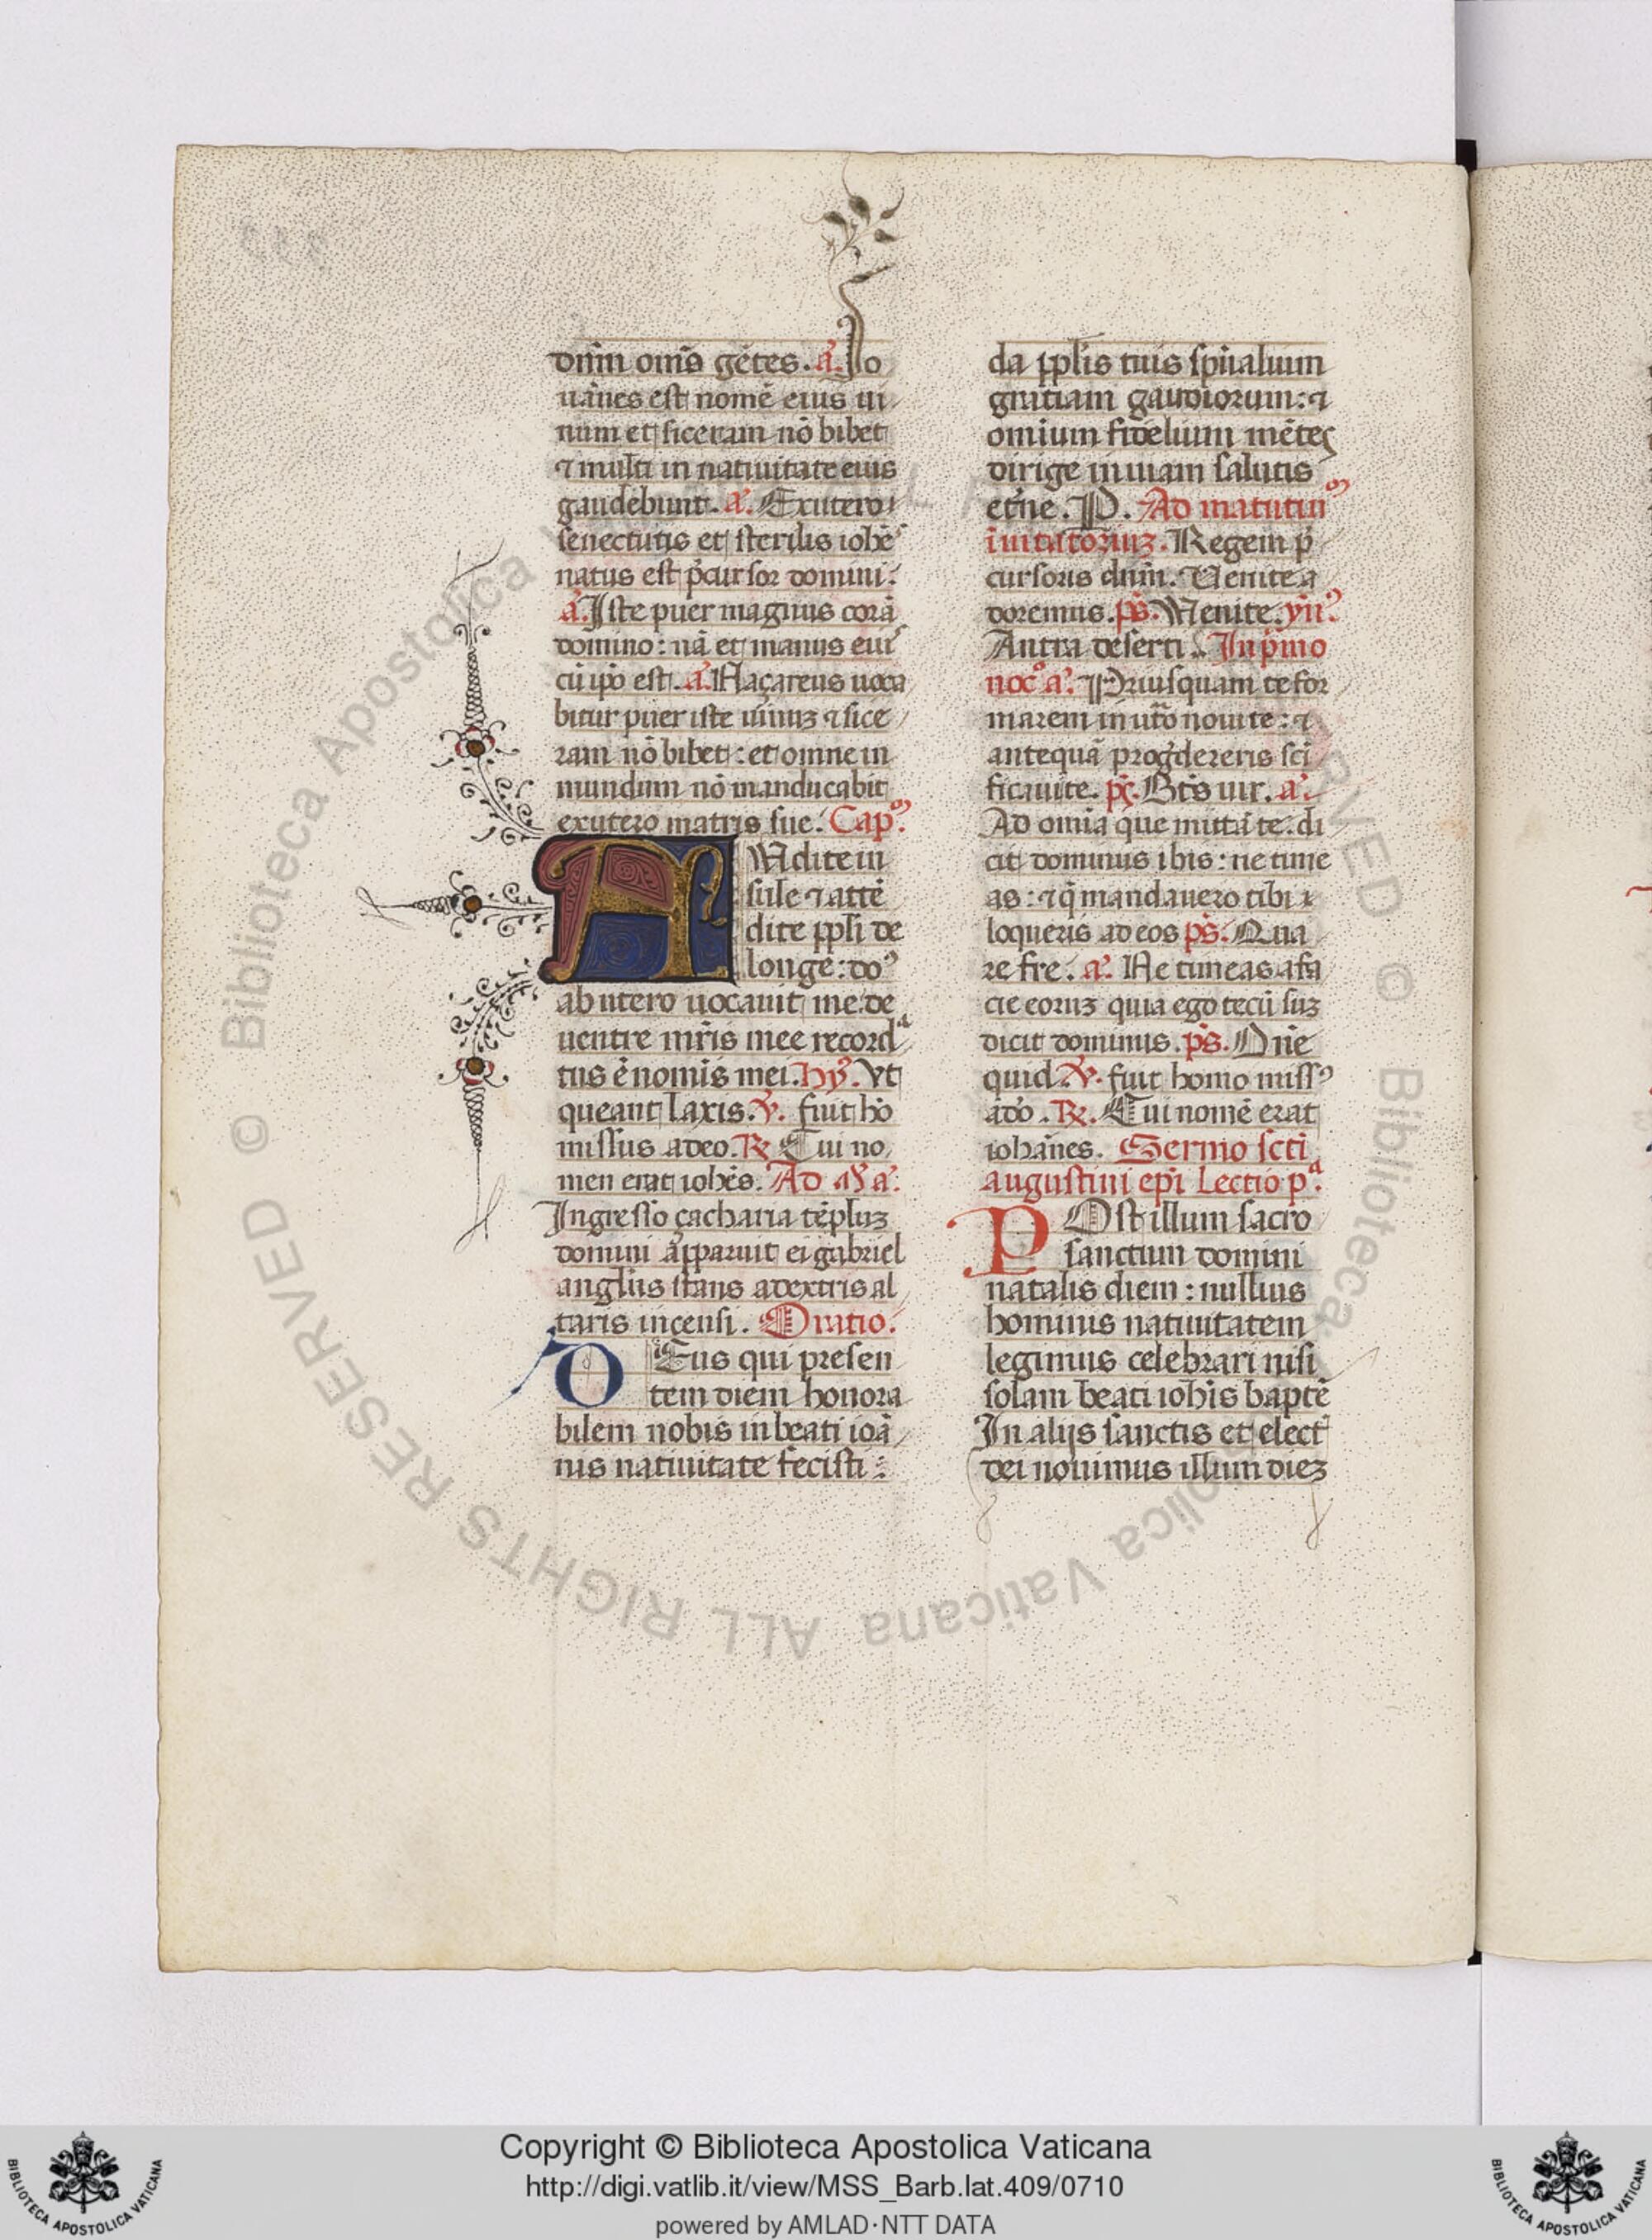 dn̄m om̄s gẽtes. a͛. Jo
uãnes est nomẽ eius ui
num et siceram nõ bibet
⁊ multi in natiuitate eius
gaudebunt. a͛. Exutero
senectutis et sterilis iohẽˢ
natus est p̃cursor domini.
a͛. Iste puer magnus corã
domino: nã et manus eiuˢ
cũ ip̃o est. a͛. Naçareus uoca
bitur puer iste uinuꝫ ⁊ sice
ram nõ bibet: et omne in
mundum nõ manducabit
exutero matris sue. Cap̊.
AUdite in
sule ⁊ attẽ
dite ppl̃i de
longe: do᷒
ab utero uocauit me. de
uentre mr̃is mee recordᵃ
tus ẽ nom̃is mei. Hy᷒. Vt
queant laxis. ℣. fuit hõ
missus adeo. ℞. Cui no
men erat ioh̃es. Ad M̃ a͛.
Ingresso çacharia tẽpluꝫ
domini apparuit ei gabriel
angl̃us stans adextris al
taris incensi. Oratio.
DEus qui presen
tem diem honora
bilem nobis inbeati ioã
nis natiuitate fecisti:
da ppl̃is tuis sp̃ualium
gratiam gaudiorum: ⁊
omium fidelium mẽtes
dirige in uiam salutis
et̃ne. P. Ad matutinͦ
inuitatoriuꝫ. Regem p̃
cursoris dñm. Uenite a
doremus. p̃s. Uenite. ym̃᷒
Antra deserti. In pͥmo
noc̊ a͛. Priusquam te for
marem in ut̃o noui te: ⁊
antequã prog̃dereris sc̃i
ficaui te. p̃s. Bt̃s uir. a͛.
Ad om̃ia que mittã te. di
cit dominus ibis: ne time
as: ⁊ q̃ mandauero tibi
loqueris ad eos p̃s. Qua
re fre. a͛. Ne timeas afa
cie eoruꝫ quia ego tecũ suꝫ
dicit dominus. p̃s. Dñe
quid. ℣. fuit homo miss᷒
ado. ℞. Cui nomẽ erat
iohãnes. Sermo sc̃ti
augustini ep̃i Lectio pᵃ.
POst illum sacro
sanctum domini
natalis diem: nullius
hominis natiuitatem
legimus celebrari nisi
solam beati ioh̃is baptẽ
In alijs sanctis et elect᷒
dei nouimus illum dieꝫ
Copyright © Biblioteca Apostolica Vaticana
http://digi.vatlib.it/view/MSS_Barb.lat.409/0710
powered by AMLAD·NTT DATA
BIBLIOTECA APOSTOLICA VATICANA
BIBLIOTECA APOSTOLICA VATICANA